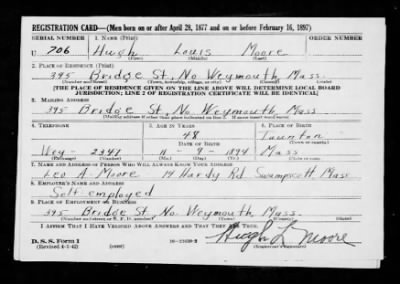 REGISTRATION CARD—(Men born on or after April 28, 1877 and on or before February 16, 1897)
SERIAL NUMBER 1. NAME (Print) ORDER NUMBER
U 706 Hugh Louis Moore
(First) (Middle) (Last)
2. PLACE OF RESIDENCE (Print)
395 Bridge St, No Weymouth, Mass.
(Number and street) (Town, township, village, or city) (County) (State)
[THE PLACE OF RESIDENCE GIVEN ON THE LINE ABOVE WILL DETERMINE LOCAL BOARD
JURISDICTION; LINE 2 OF REGISTRATION CERTIFICATE WILL BE IDENTICAL]
3. MAILING ADDRESS
395 Bridge St, No Weymouth, Mass
[Mailing address if other than place indicated on line 2. If same insert word same]
4. TELEPHONE 5. AGE IN YEARS 6. PLACE OF BIRTH
48 Taunton
DATE OF BIRTH (Town or county)
Wey - 2347 11 - 9 - 1894 Mass
(Exchange) (Number) (Mo.) (Day) (Yr.) (State or country)
7. NAME AND ADDRESS OF PERSON WHO WILL ALWAYS KNOW YOUR ADDRESS
Leo A Moore 14 Hardy Rd Swampscott Mass
8. EMPLOYER'S NAME AND ADDRESS
Self employed
9. PLACE OF EMPLOYMENT OR BUSINESS
395 Bridge St, No. Weymouth Mass.
(Number and street or R. F. D. number) (Town) (County) (State)
I AFFIRM THAT I HAVE VERIFIED ABOVE ANSWERS AND THAT THEY ARE TRUE.
Hugh L Moore
D. S. S. Form 1
(Revised 4-1-42) (over) (Registrant's signature)